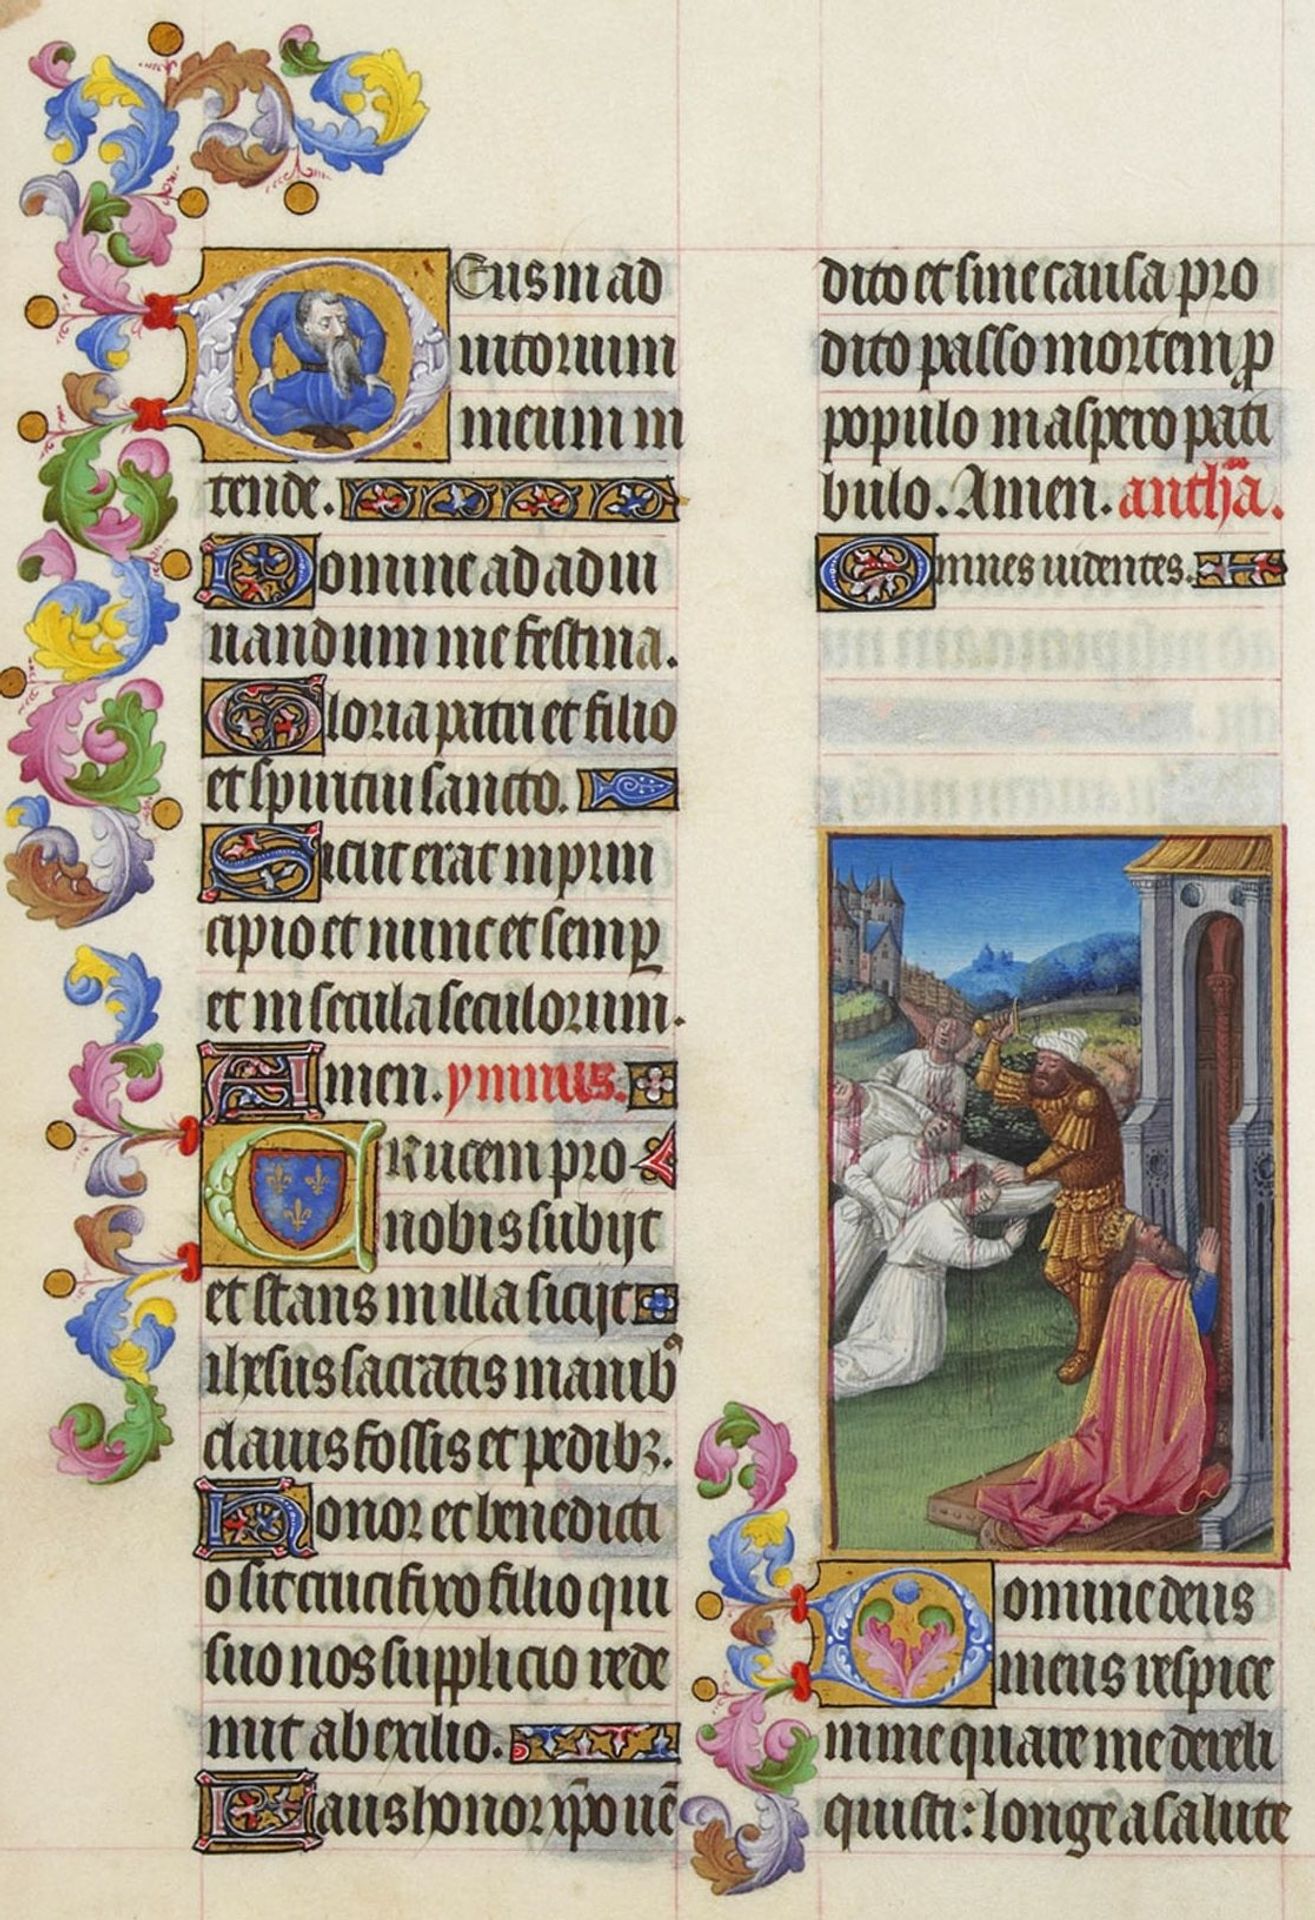 Deus in ad
iutorium
meum in
tende.
Domine ad adiu
uandum me festina.
Gloria patri et filio
et spiritui sancto.
Sicut erat in prin
cipio et nunc et semp
et in secula seculorum.
Amen. ymnus.
Crucem pro
nobis subijt
et stans in illa sicijt
ihesus sacratis manibꝰ
clauis fossis et pedibꝫ.
Honor et benedicti
o sit crucifixo filio qui
suo nos supplicio rede
mit ab exilio.
Laus honor xp̄o uē
dito et sine causa pro
dito passo mortem ꝓ
populo in aspero pati
bulo. Amen. anth̄a.
Omnes uidentes.
Domine deus
meus respice
in me quare me dereli
quisti: longe a salute